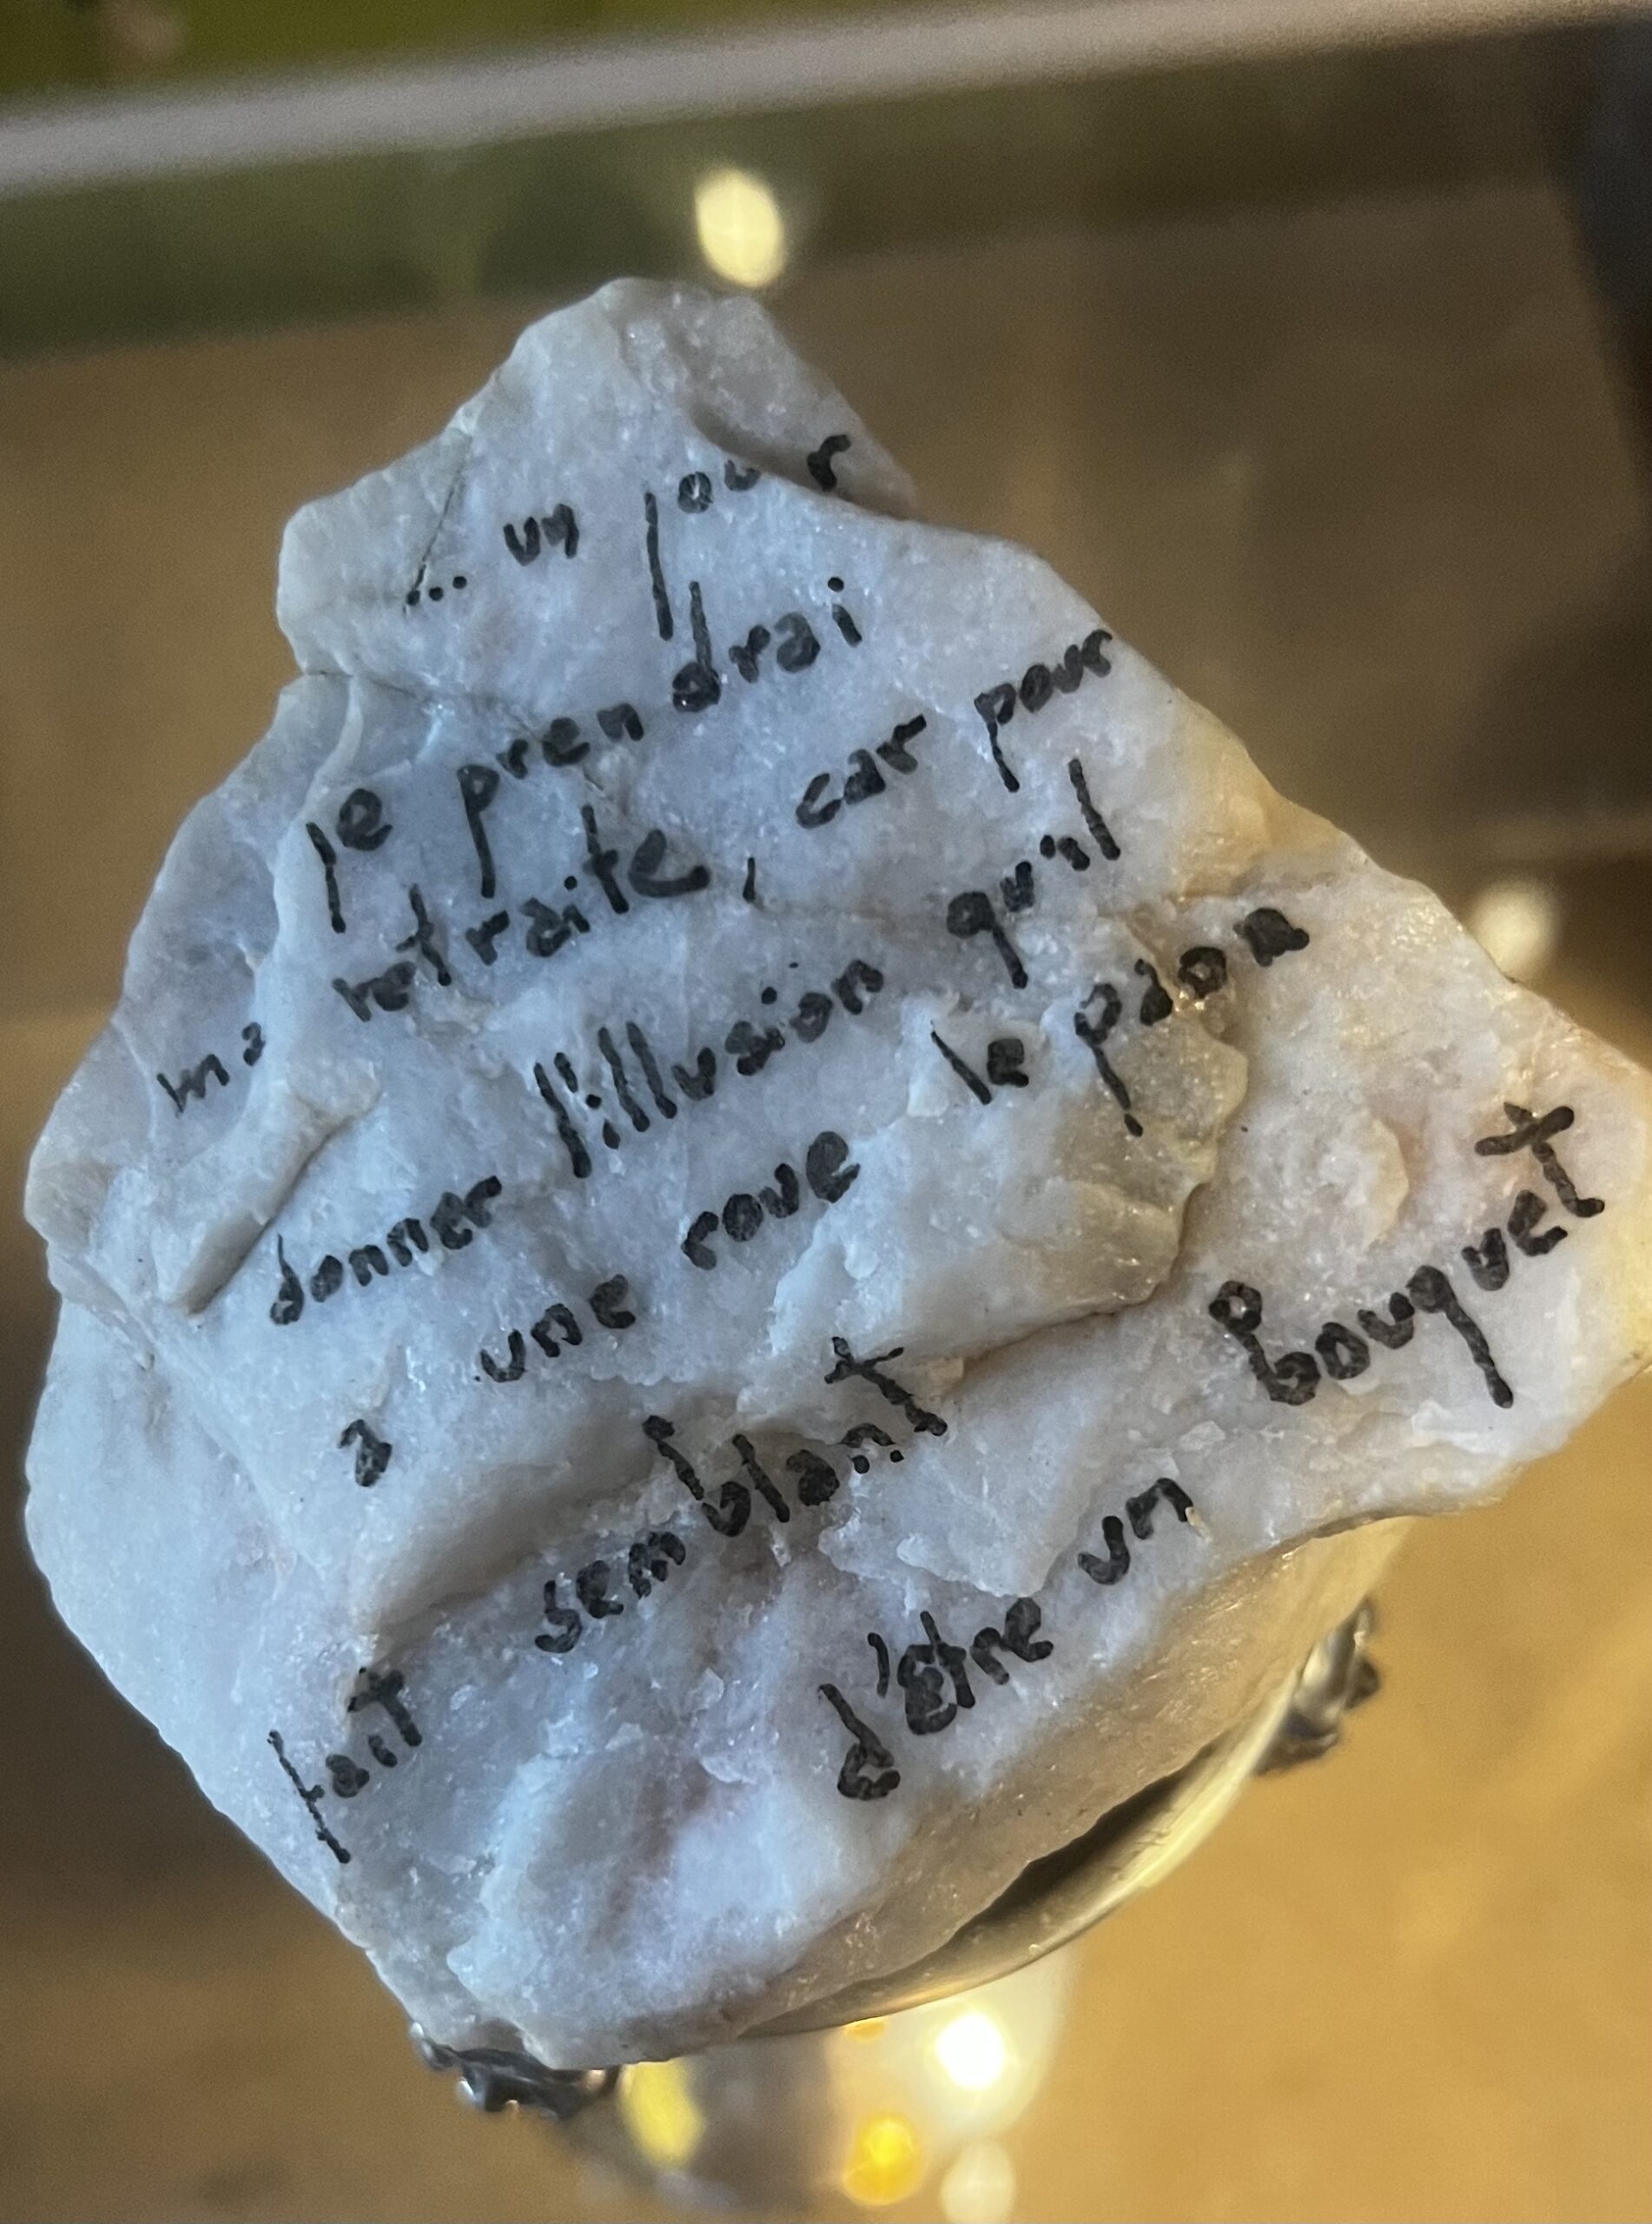 ... un jour
je prendrai
ma retraite, car pour
donner l'illusion qu'il
a une roue le paon
fait semblant
d'être un Bouquet